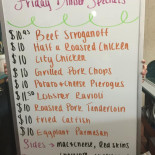 Friday Dinner Specials
$10.95 Beef Stroganoff
$10 Half a Roasted Chicken
$10 City Chicken
$10 Grilled Pork Chops
$10 Potato & Cheese Pierogus
$11.50 Lobster Ravioli
$10 Roasted Pork Tenderloin
$10 Fried Catfish
$10 Eggplant Parmesan
Sides → mac & cheese, Red skins